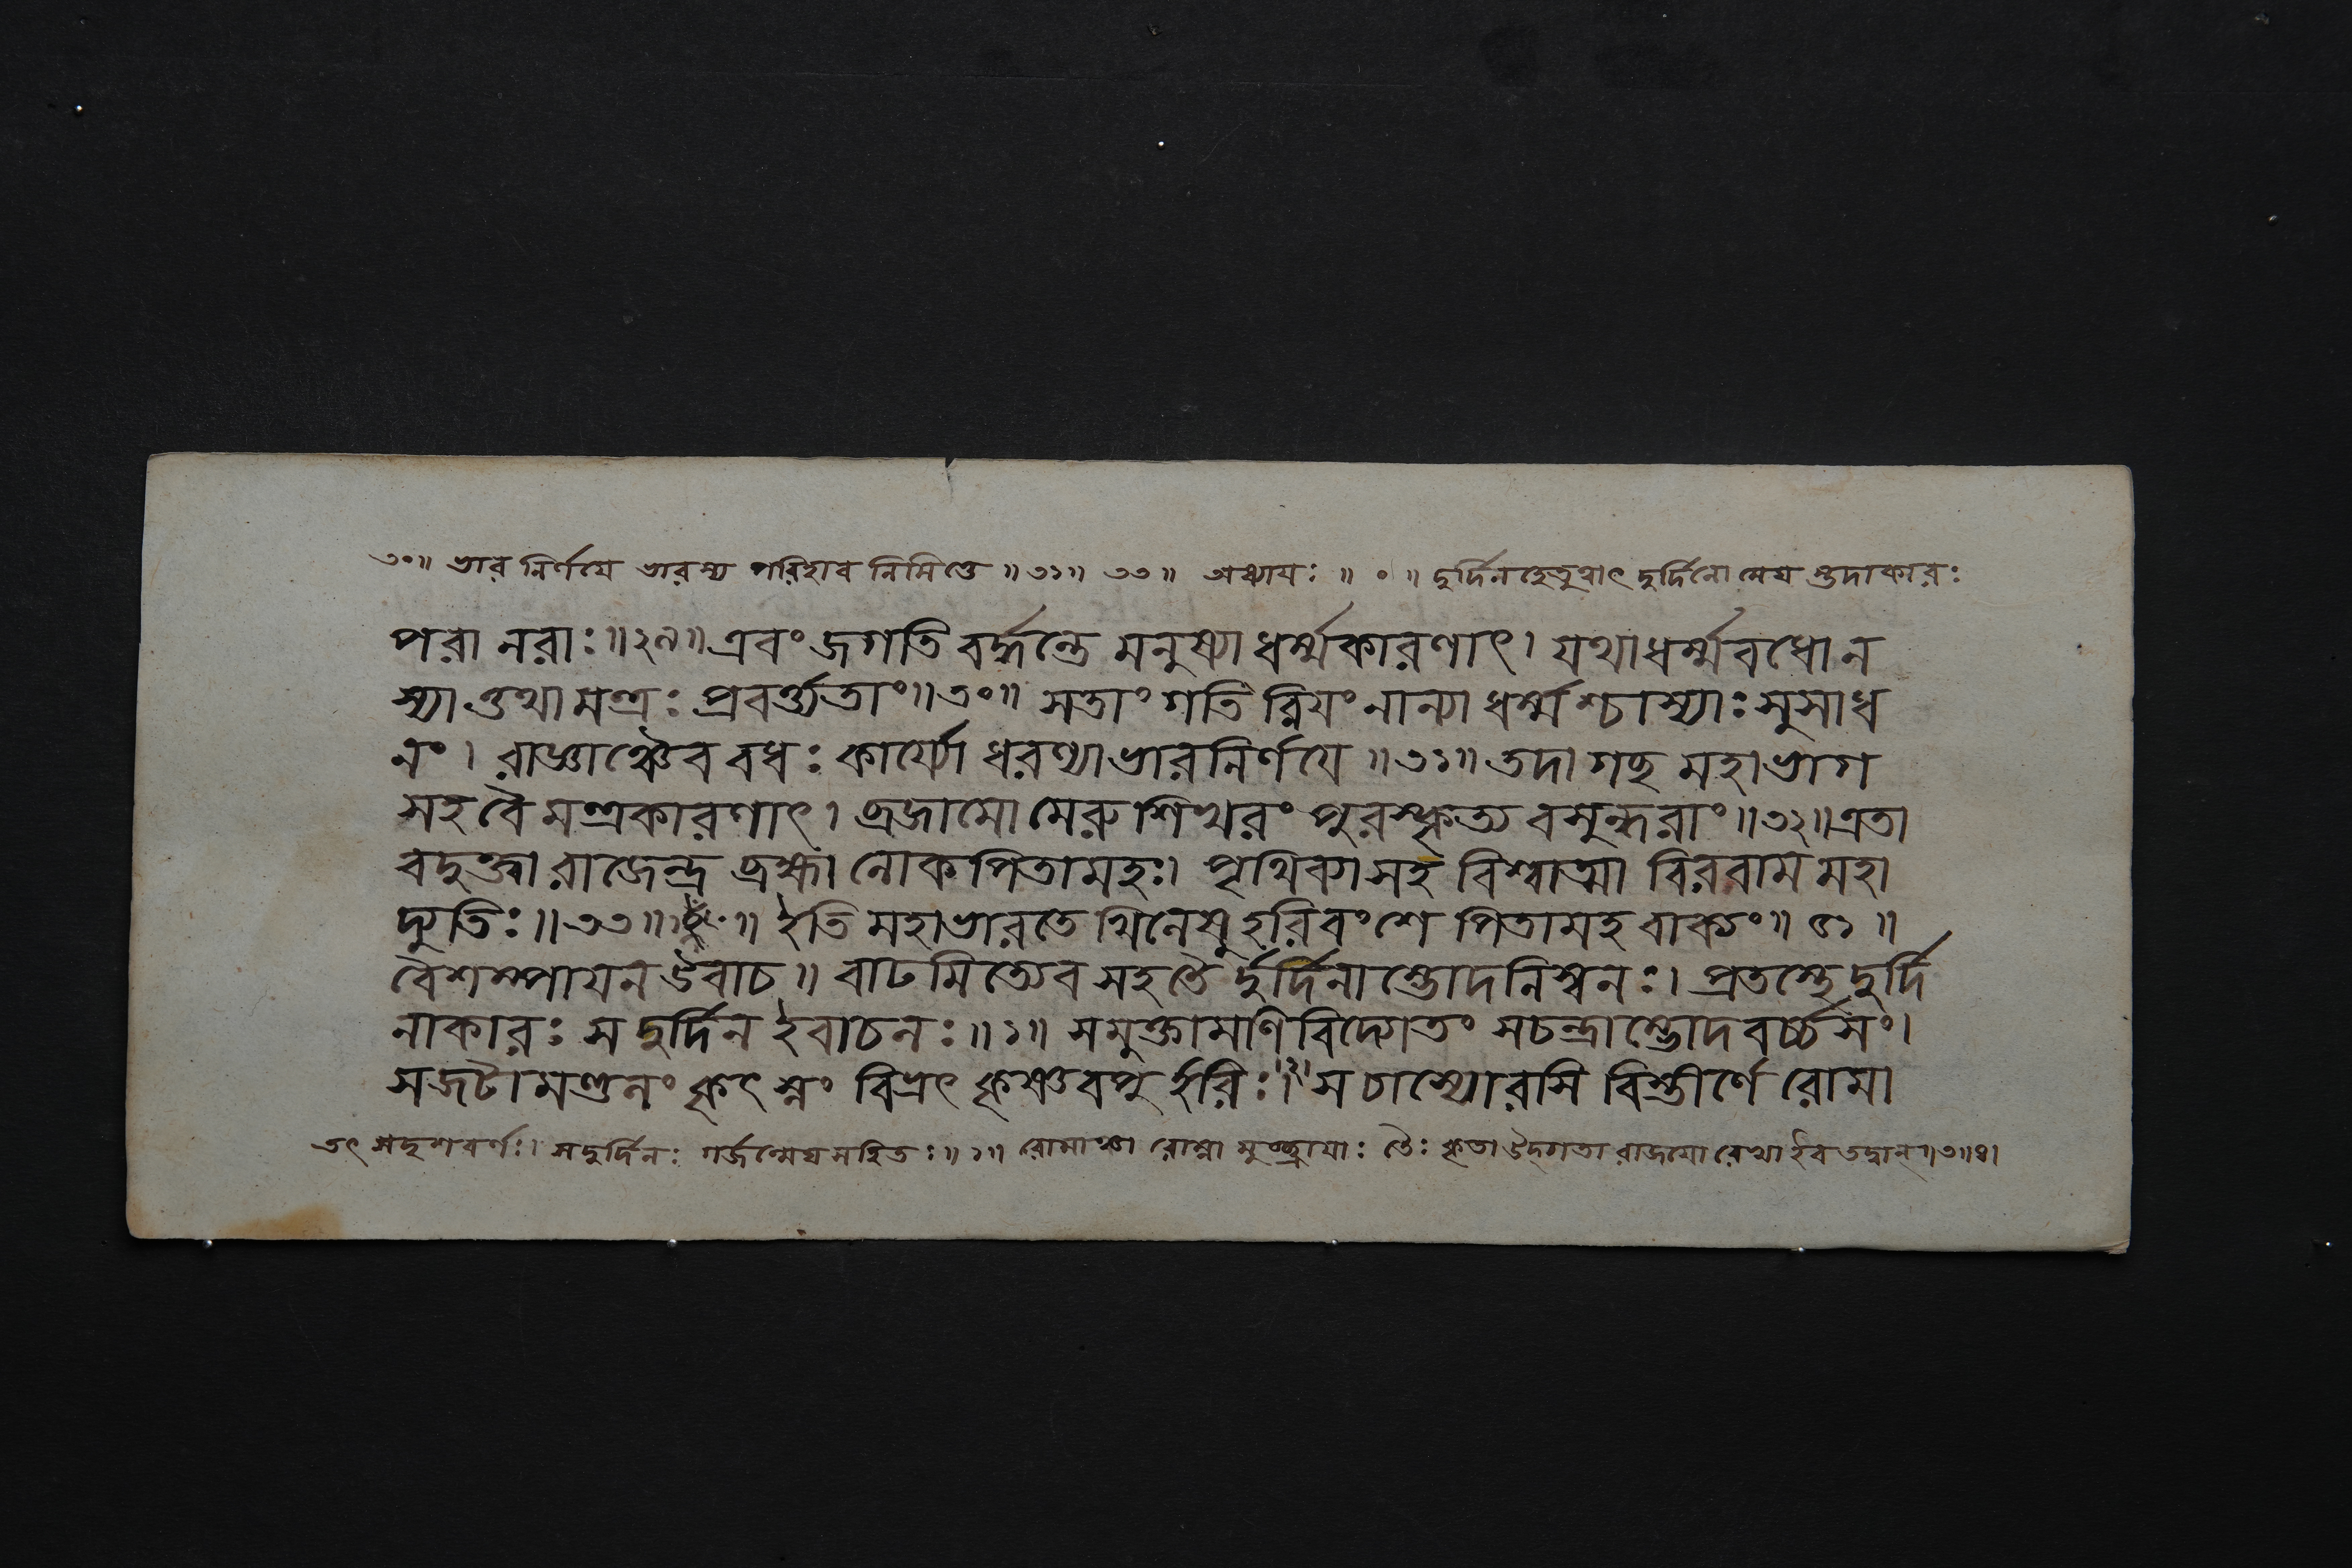 ৩০॥ ভার নির্ণয়ে ভারস্য পরিহার নিমিত্তে ॥৩১॥ ৩৩॥ অধ্যায়ঃ ॥ ० ॥ দুর্দিনহেতুত্বাৎ দুর্দিনো মেঘ স্তদাকারঃ
পরা নরাঃ॥২৯॥এবং জগতি বর্ত্তন্তে মনুষ্যা ধর্ম্মকারণাৎ। যথাধর্ম্মবধো ন
স্যা ত্তথা মন্ত্রঃ প্রবর্ত্ত্যতাং॥৩০॥ সতাং গতি রিয়ং নান্যা ধর্ম্ম শ্চাস্যাঃ সুসাধ
নং। রাজ্ঞাঞ্চৈব বধঃ কার্য্যো ধরণ্যা ভারনির্ণয়ে ॥৩১॥ তদা গচ্ছ মহাভাগ
সহ বৈ মন্ত্রকারণাৎ। ব্রজামো মেরু শিখরং পুরস্কৃত্য বসুন্ধরাং॥৩২॥এতা
বদুক্ত্বা রাজেন্দ্র ব্রহ্মা লোক পিতামহঃ। পৃথিব্যা সহ বিশ্বাত্মা বিররাম মহা
দ্যুতিঃ॥৩৩॥ ॥ ইতি মহাভারতে খিলেষু হরিবংশে পিতামহ বাক্যং॥ ৫১ ॥
বৈশম্পায়ন উবাচ॥ বাঢ মিত্যেব সহ তৈ র্দুর্দিনাম্ভোদনিস্বনঃ। প্রতস্থে দুর্দি
নাকারঃ স দুর্দিন ইবাচলঃ॥১॥ সমুক্তামণিবিদ্যোতং সচন্দ্রাম্ভোদবর্চ্চসং।
সজটামণ্ডলং কৃৎস্নং বিভ্রৎ কৃষ্ণবপু র্হরিঃ।॥২॥ স চাস্যোরসি বিস্তীর্ণে রোমা
তৎ সদৃশবর্ণঃ। সদুর্দিনঃ গর্জন্মেঘসহিতঃ॥১॥ রোমাঞ্চা রোম্না মুচ্ছ্রায়াঃ তৈঃ কৃতা উদ্গতা রাজয়ো রেখা ইব তদ্বান্॥৩॥৪।